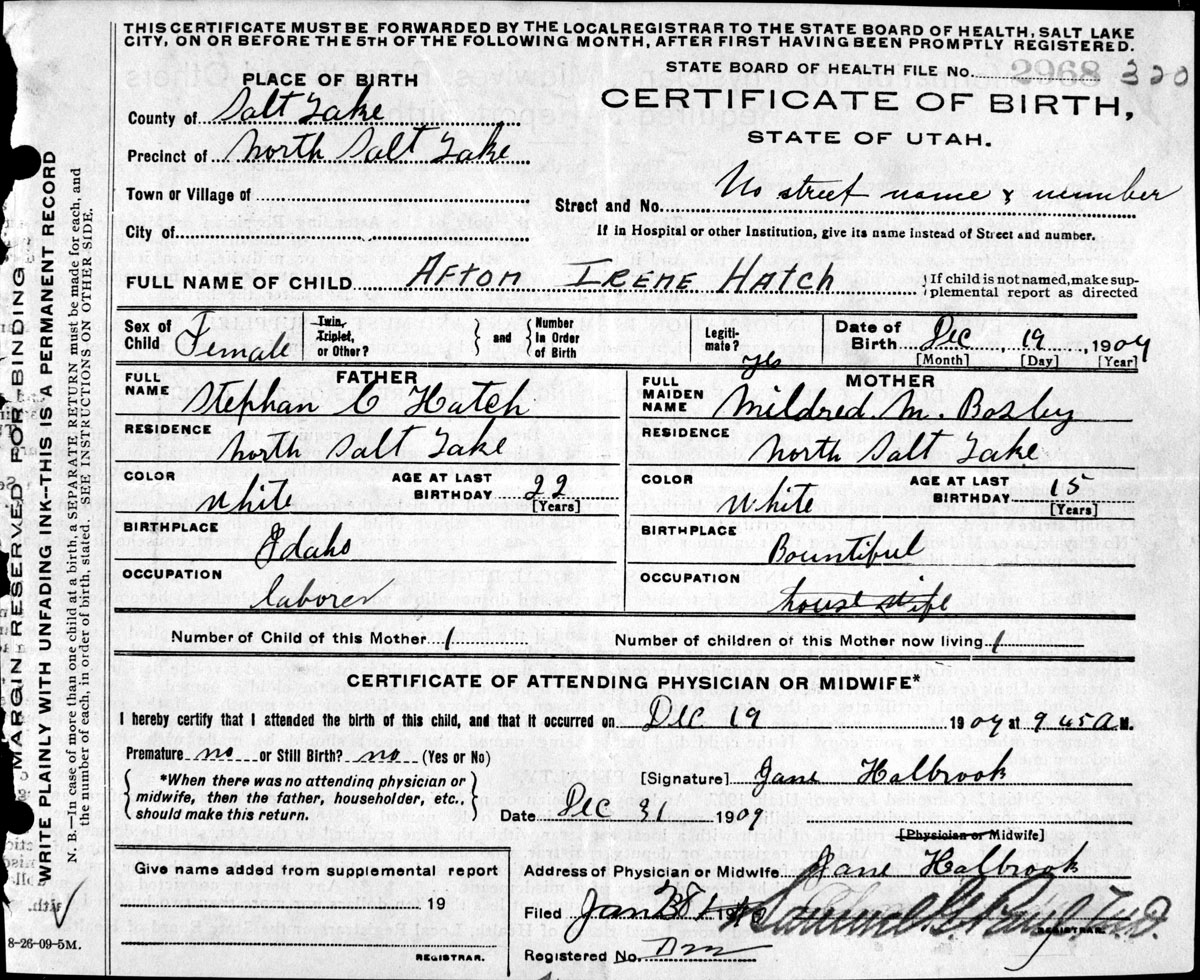 THIS CERTIFICATE MUST BE FORWARDED BY THE LOCAL REGISTRAR TO THE STATE BOARD OF HEALTH, SALT LAKE
CITY, ON OR BEFORE THE 5TH OF THE FOLLOWING MONTH, AFTER FIRST HAVING BEEN PROMPTLY REGISTERED.
STATE BOARD OF HEALTH FILE No. 2968 320
PLACE OF BIRTH
CERTIFICATE OF BIRTH,
STATE OF UTAH.
County of Salt Lake
Precinct of North Salt Lake
Town or Village of
Street and No. No street name & number
City of
If in Hospital or other Institution, give its name instead of Street and number.
FULL NAME OF CHILD Afton Irene Hatch
If child is not named, make sup-
plemental report as directed
Sex of Child Female
Twin, Triplet, or Other?
and
Number In Order of Birth
Legiti-mate? yes
Date of Birth Dec 19, 1909
[Month] [Day] [Year]
FATHER
MOTHER
FULL NAME Stephan C Hatch
FULL MAIDEN NAME Mildred M. Bosley
RESIDENCE North Salt Lake
RESIDENCE North Salt Lake
COLOR White
AGE AT LAST BIRTHDAY 22 [Years]
COLOR White
AGE AT LAST BIRTHDAY 15 [Years]
BIRTHPLACE Idaho
BIRTHPLACE Bountiful
OCCUPATION laborer
OCCUPATION house wife
Number of Child of this Mother 1
Number of children of this Mother now living 1
CERTIFICATE OF ATTENDING PHYSICIAN OR MIDWIFE*
I hereby certify that I attended the birth of this child, and that it occurred on Dec 19 1909 at 9 45 A. M.
Premature no or Still Birth? no (Yes or No)
*When there was no attending physician or
midwife, then the father, householder, etc.,
should make this return.
[Signature] Jane Halbrook
Date Dec 31 1909
[Physician or Midwife]
Give name added from supplemental report
19
REGISTRAR.
Address of Physician or Midwife Jane Halbrook
Filed Jan 19
REGISTRAR.
Registered No.
MARGIN RESERVED FOR BINDING
WRITE PLAINLY WITH UNFADING INK—THIS IS A PERMANENT RECORD
N. B.—In case of more than one child at a birth, a SEPARATE RETURN must be made for each, and
the number of each, in order of birth, stated. SEE INSTRUCTIONS ON OTHER SIDE.
8-26-09-5M.